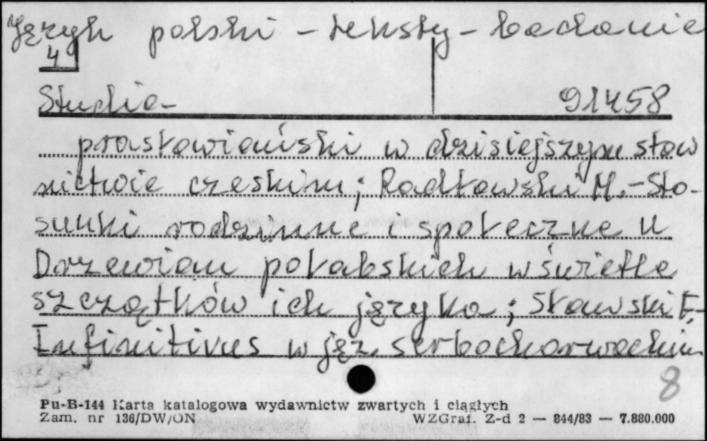 Język polski - teksty - badanie
4
Studia- 91458
prasłowiański w dzisiejszym słow
nictwie czeskim; Radłowski M.-Sto-
sunki rodzinne i społeczne u
Drzewian połabskich w świetle
szczątków ich języka; Sławski F.-
Infinitivus w jęz. serbochorwackim
8
Pu-B-144 Karta katalogowa wydawnictw zwartych i ciągłych
Zam. nr 136/DW/ON WZGraf. Z-d 2 — 844/83 — 7.880.000